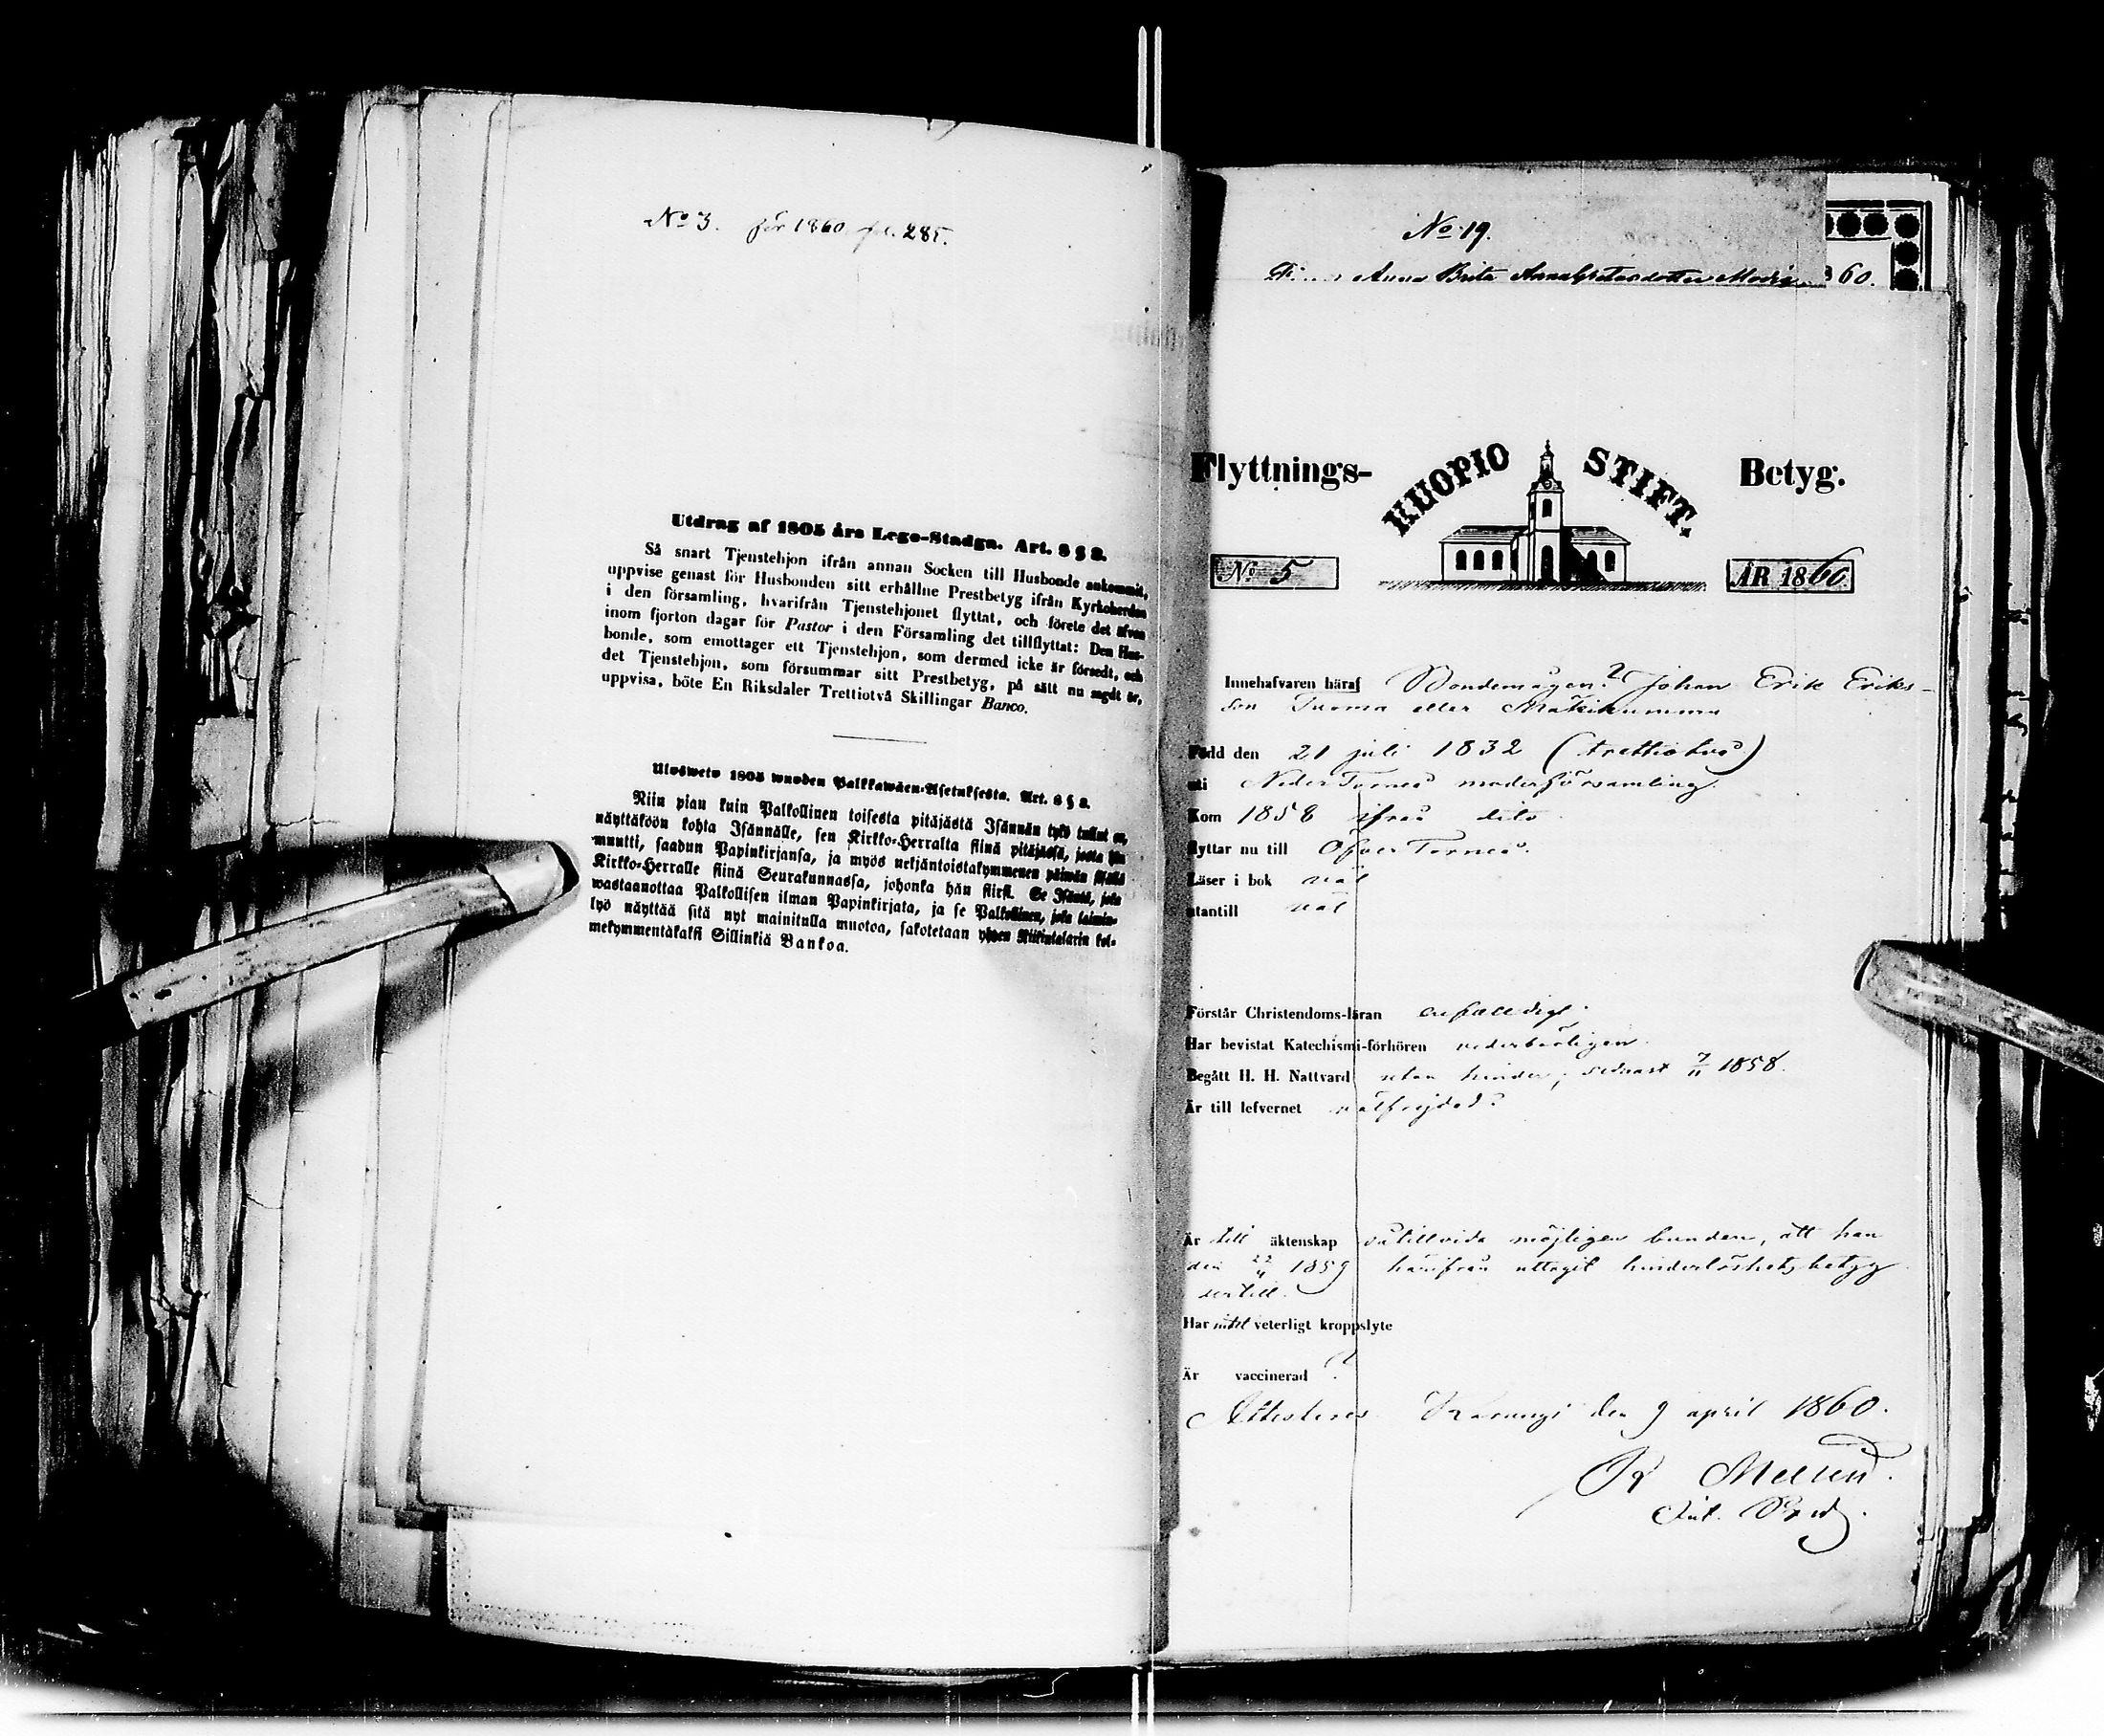 No 3. för 1860. fol. 285.
Utdrag af 1805 års Lego-Stadga. Art. 8 § 2.
Så snart Tjenstehjon ifrån annan Socken till Husbonde ankommit,
uppvise genast för Husbonden sitt erhållne Prestbetyg ifrån Kyrkoherden
i den församling, hvarifrån Tjenstehjonet flyttat, och förete det äfven
inom fjorton dagar för Pastor i den Församling det tillflyttat: Den Hus-
bonde, som emottager ett Tjenstehjon, som dermed icke är försedt, och
det Tjenstehjon, som försummar sitt Prestbetyg, på sätt nu sagdt är,
uppvisa, böte En Riksdaler Trettiotvå Skillingar Banco.
Ulosweto 1805 wuoden Palkkawäen-Asetuksesta. Art. 8 § 2.
Niin pian kuin Palkollinen toisesta pitäjästä Isännän tykö tullut on,
näyttäköön kohta Isännälle, sen Kirkko-Herralta siinä pitäjässä, josta hän
muutti, saadun Papinkirjansa, ja myös neljäntoistakymmenen päiwän sisällä
Kirkko-Herralle siinä Seurakunnassa, johonka hän siirsi. Se Isäntä, joka
wastaanottaa Palkollisen ilman Papinkirjata, ja se Palkollinen, joka laimin-
lyö näyttää sitä nyt mainitulla muotoa, sakotetaan yhden Riikintalarin kol-
mekymmentäkaksi Sillinkiä Bankoa.
No 19.
Anna Brita AnnaGretasdotter 60.
Flyttnings- KUOPIO STIFT. Betyg.
No 5 ÅR 1860
Innehafvaren häraf Bondemågen? Johan Erik Eriks-
son Tuoma eller Mäkikumma
Född den 21 juli 1832 (trettiotvå)
uti Neder Torneå moderförsamling.
Kom 1858 ifrån dito
flyttar nu till Öfver Torneå.
Läser i bok väl
utantill väl
Förstår Christendoms-läran enfaldigt.
Har bevistat Katechismi-förhören vederbörligen.
Begått H. H. Nattvard utan hinder; sednast 7/11 1858.
Är till lefvernet välfrejdad?
Är till äktenskap såtillvida möjligen bunden, att han
den 22/11 1859 härifrån uttagit hinderlöshetsbetyg
dertill.
Har intet veterligt kroppslyte
Är vaccinerad ?
Attesteras Karungi den 9 april 1860.